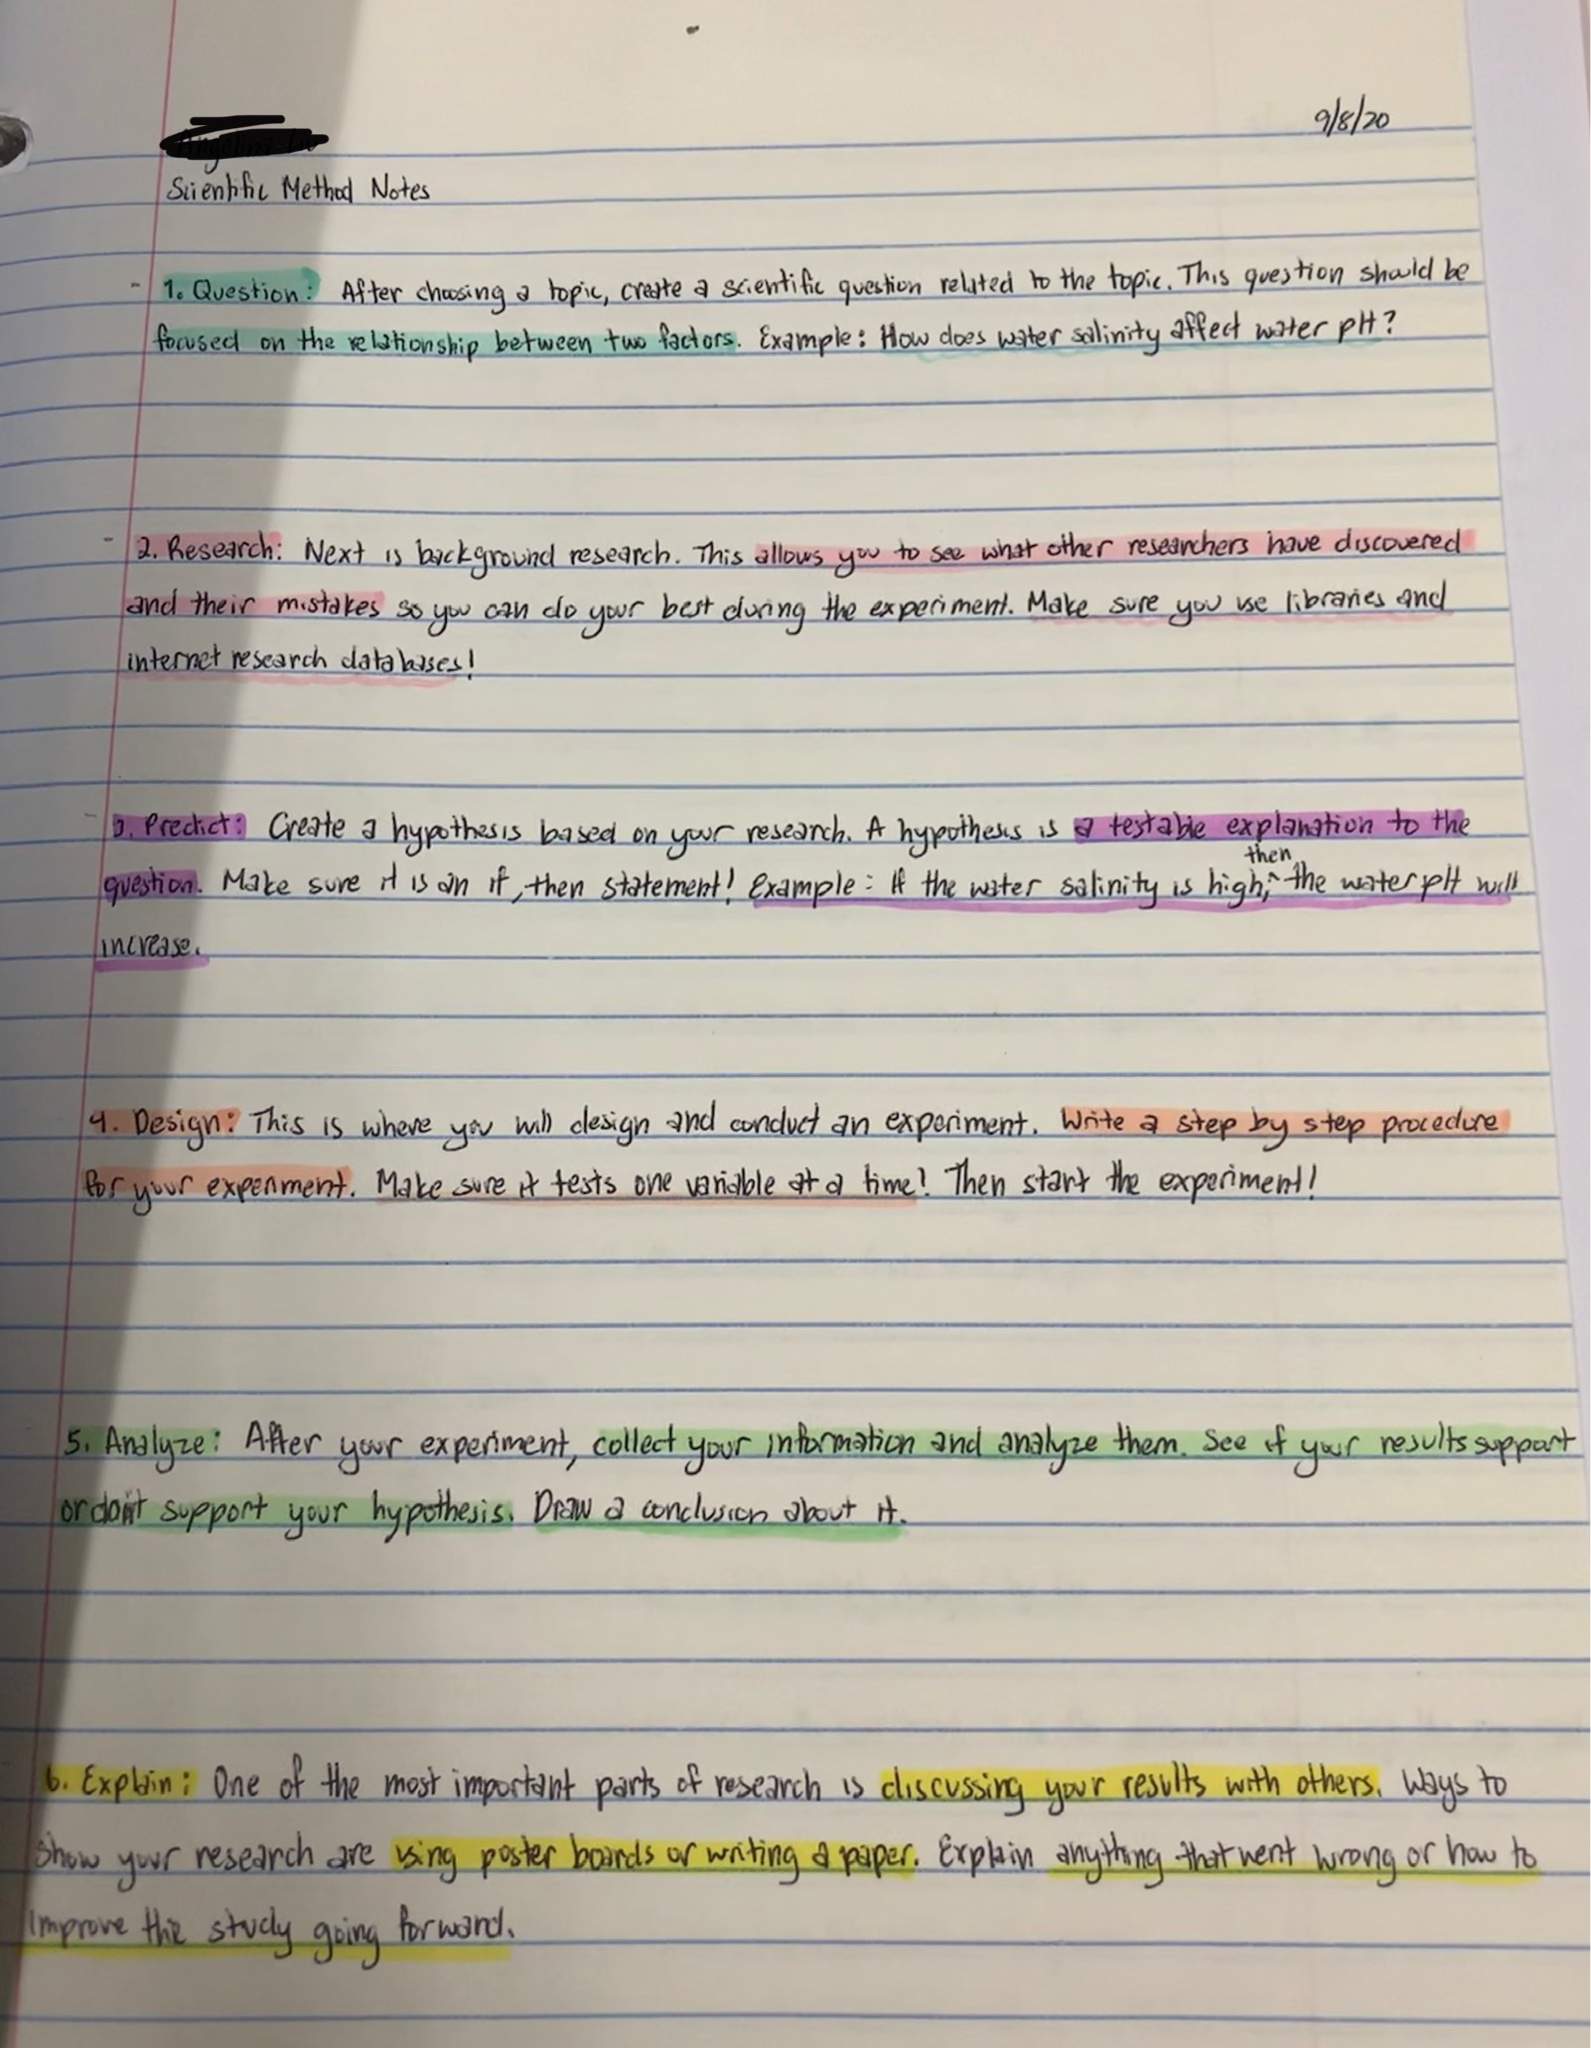 9/8/20
Scientific Method Notes
- 1. Question: After choosing a topic, create a scientific question related to the topic. This question should be
focused on the relationship between two factors. Example: How does water salinity affect water pH?
- 2. Research: Next is background research. This allows you to see what other researchers have discovered
and their mistakes so you can do your best during the experiment. Make sure you use libraries and
internet research databases!
- 3. Predict: Create a hypothesis based on your research. A hypothesis is a testable explanation to the
question. Make sure it is an if, then statement! Example: If the water salinity is high, then the water pH will
increase.
4. Design: This is where you will design and conduct an experiment. Write a step by step procedure
for your experiment. Make sure it tests one variable at a time! Then start the experiment!
5. Analyze: After your experiment, collect your information and analyze them. See if your results support
or don't support your hypothesis. Draw a conclusion about it.
6. Explain: One of the most important parts of research is discussing your results with others. Ways to
show your research are using poster boards or writing a paper. Explain anything that went wrong or how to
improve the study going forward.